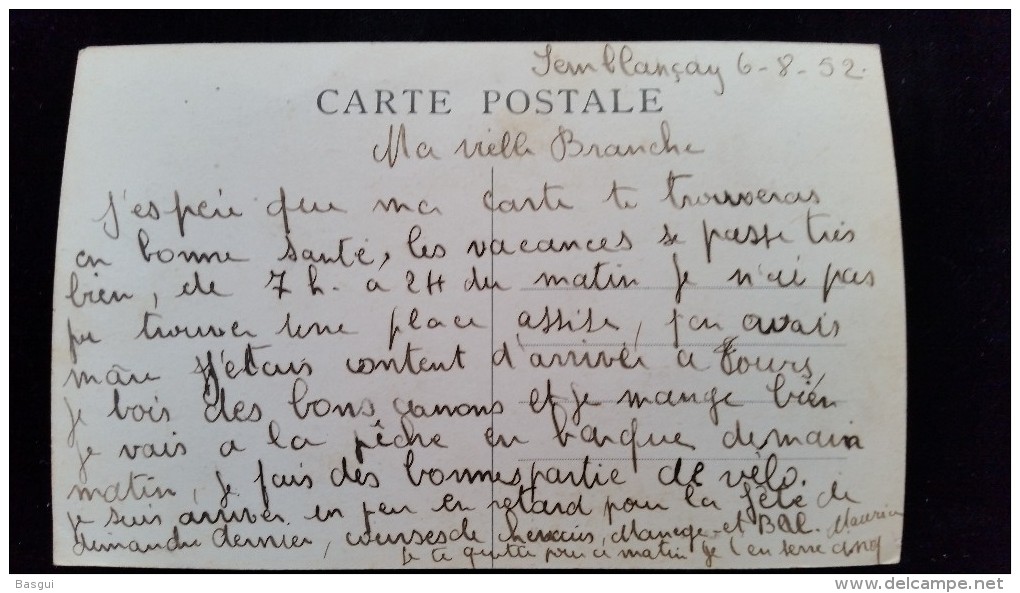 Semblançay 6-8-52.
CARTE POSTALE
Ma vielle Branche
J'espére que ma carte te trouveras
en bonne santé, les vacances se passe très
bien, de 7 h. a 24 du matin je n'ai pas
pu trouver une place assise, j'en avais
mare j'etais content d'arriver a Tours,
je bois des bons canons et je mange bien
je vais a la pêche en barque demain
matin, je fais des bonnes partie de vélo.
je suis arriver un peu en retard pour la fête de
dimanche dernier, courses de chevaux, Manege et BAL. Maurice
Je te quitte pour ce matin je t'en serre cinq
Basgui
www.delcampe.net